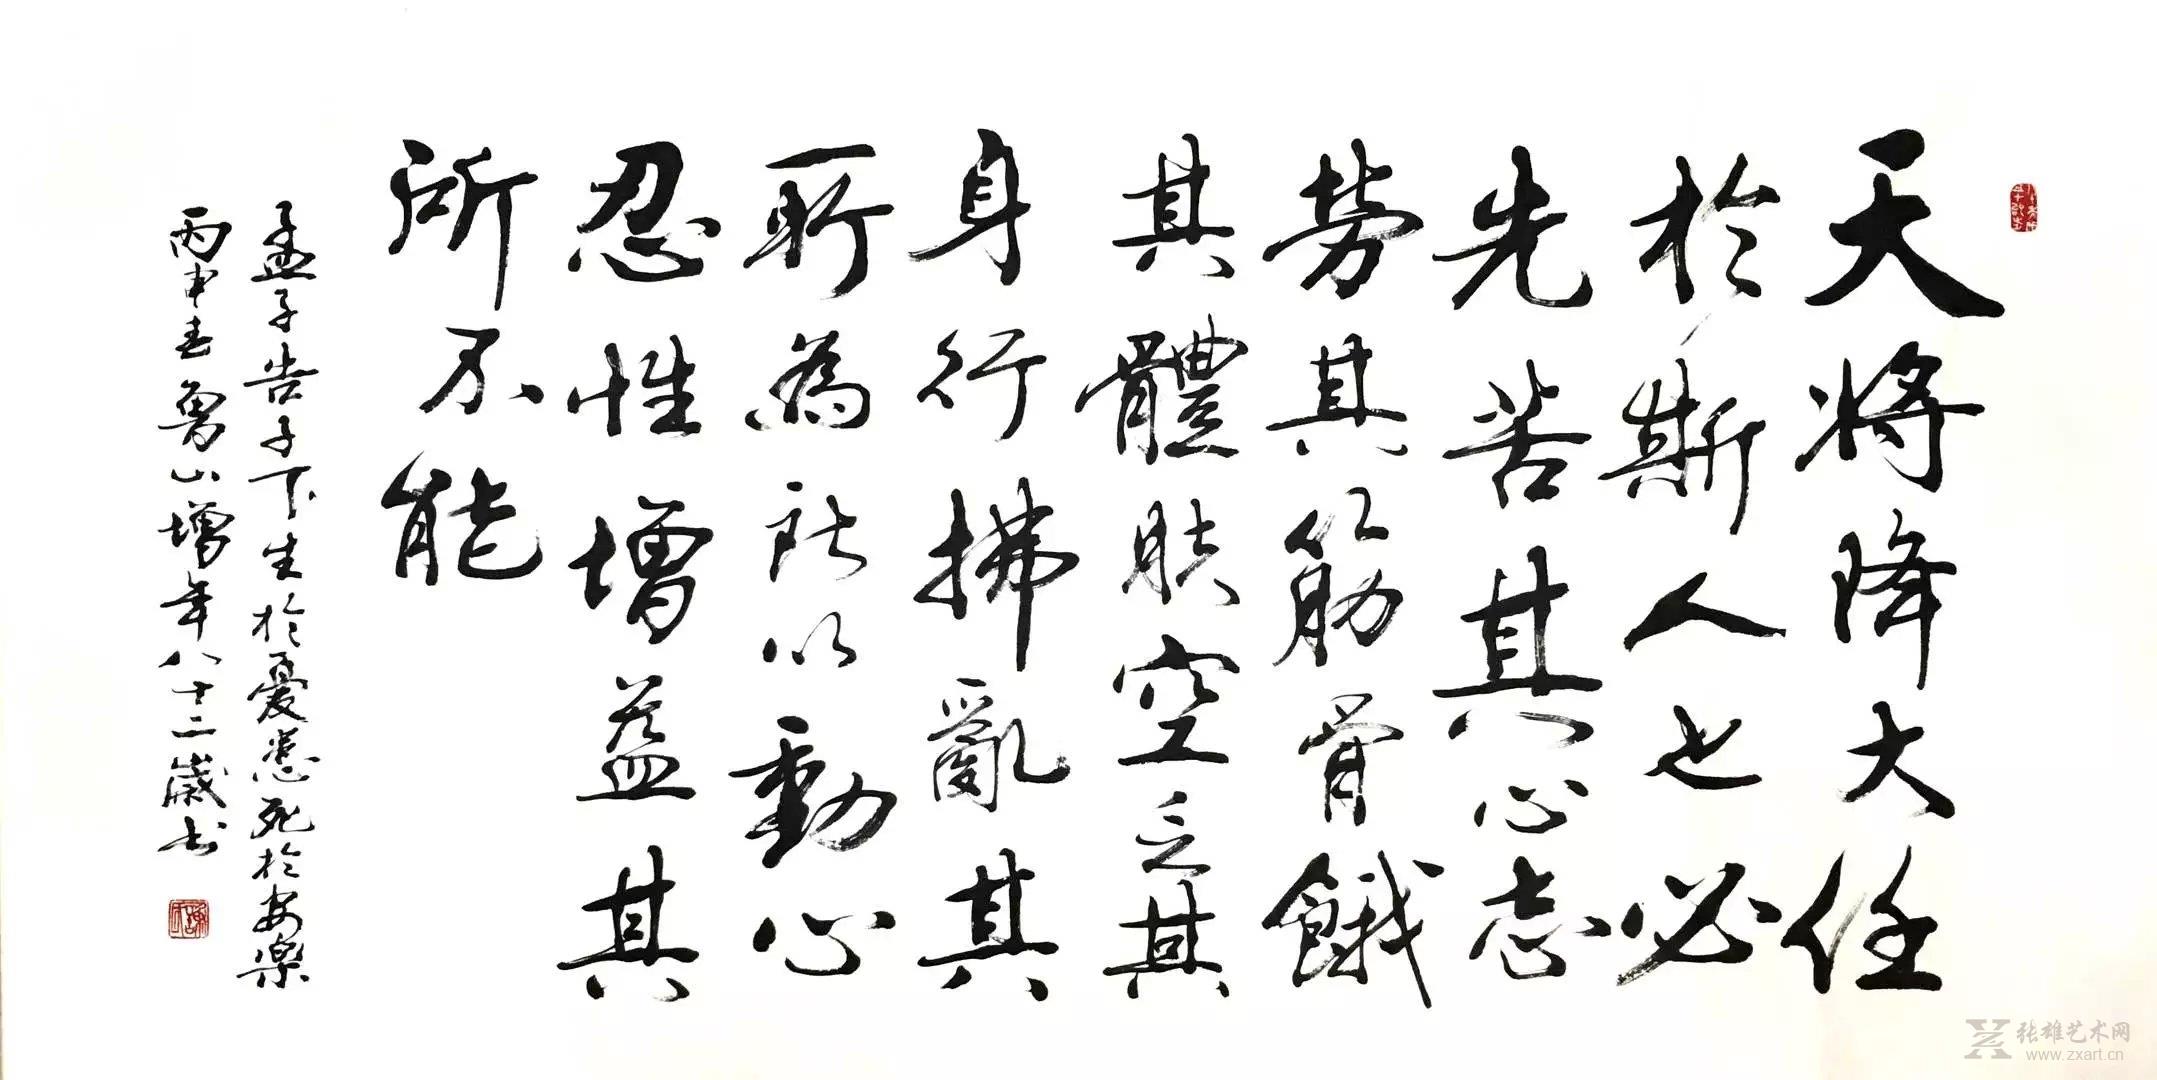 天将降大任
於斯人也必
先苦其心志
劳其筋骨餓
其體肤空乏其
身行拂亂其
所為所以動心
忍性增益其
所不能
孟子告子下生於憂患死於安樂
丙申春魯山增年八十二歲书
张雄艺术网
www.zxart.cn